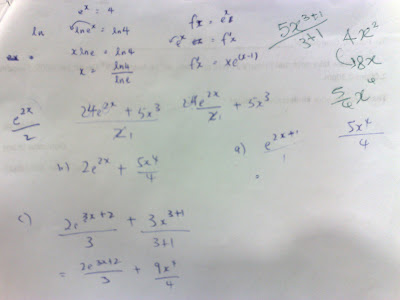 eˣ = 4
ln √lneˣ = ln4
x lne = ln4
x = ln4/lne
f'x = xe^(x-1)
5x³⁺¹/3+1
4x²
8x
5/4 x⁴
e²ˣ/2
24e²ˣ + 5x³
24e²ˣ + 5x³
b) 2e²ˣ + 5x⁴/4
a) e²ˣ⁺¹/1
=
5x⁴/4
c) 2e³ˣ⁺²/3 + 3x³⁺¹/3+1
= 2e³ˣ⁺²/3 + 9x⁴/4